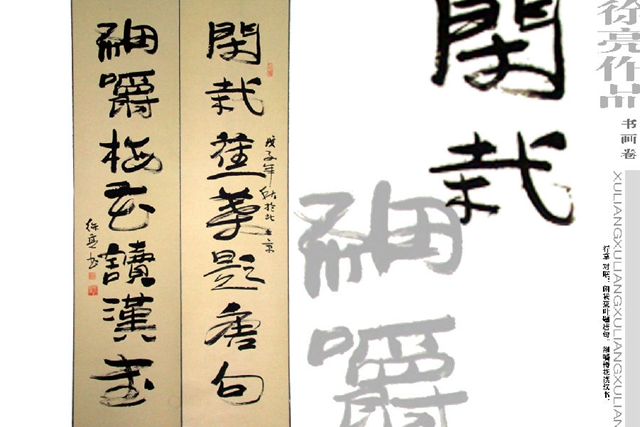 閑栽蕉葉題唐句
戊子年秋於北京
細嚼梅花讀漢書
徐亮书
閑栽
細嚼
徐亮作品
书画卷
XULIANGXULIANGXULIANGXULIAN
行草 对联：闲栽蕉叶题唐句，细嚼梅花读汉书。